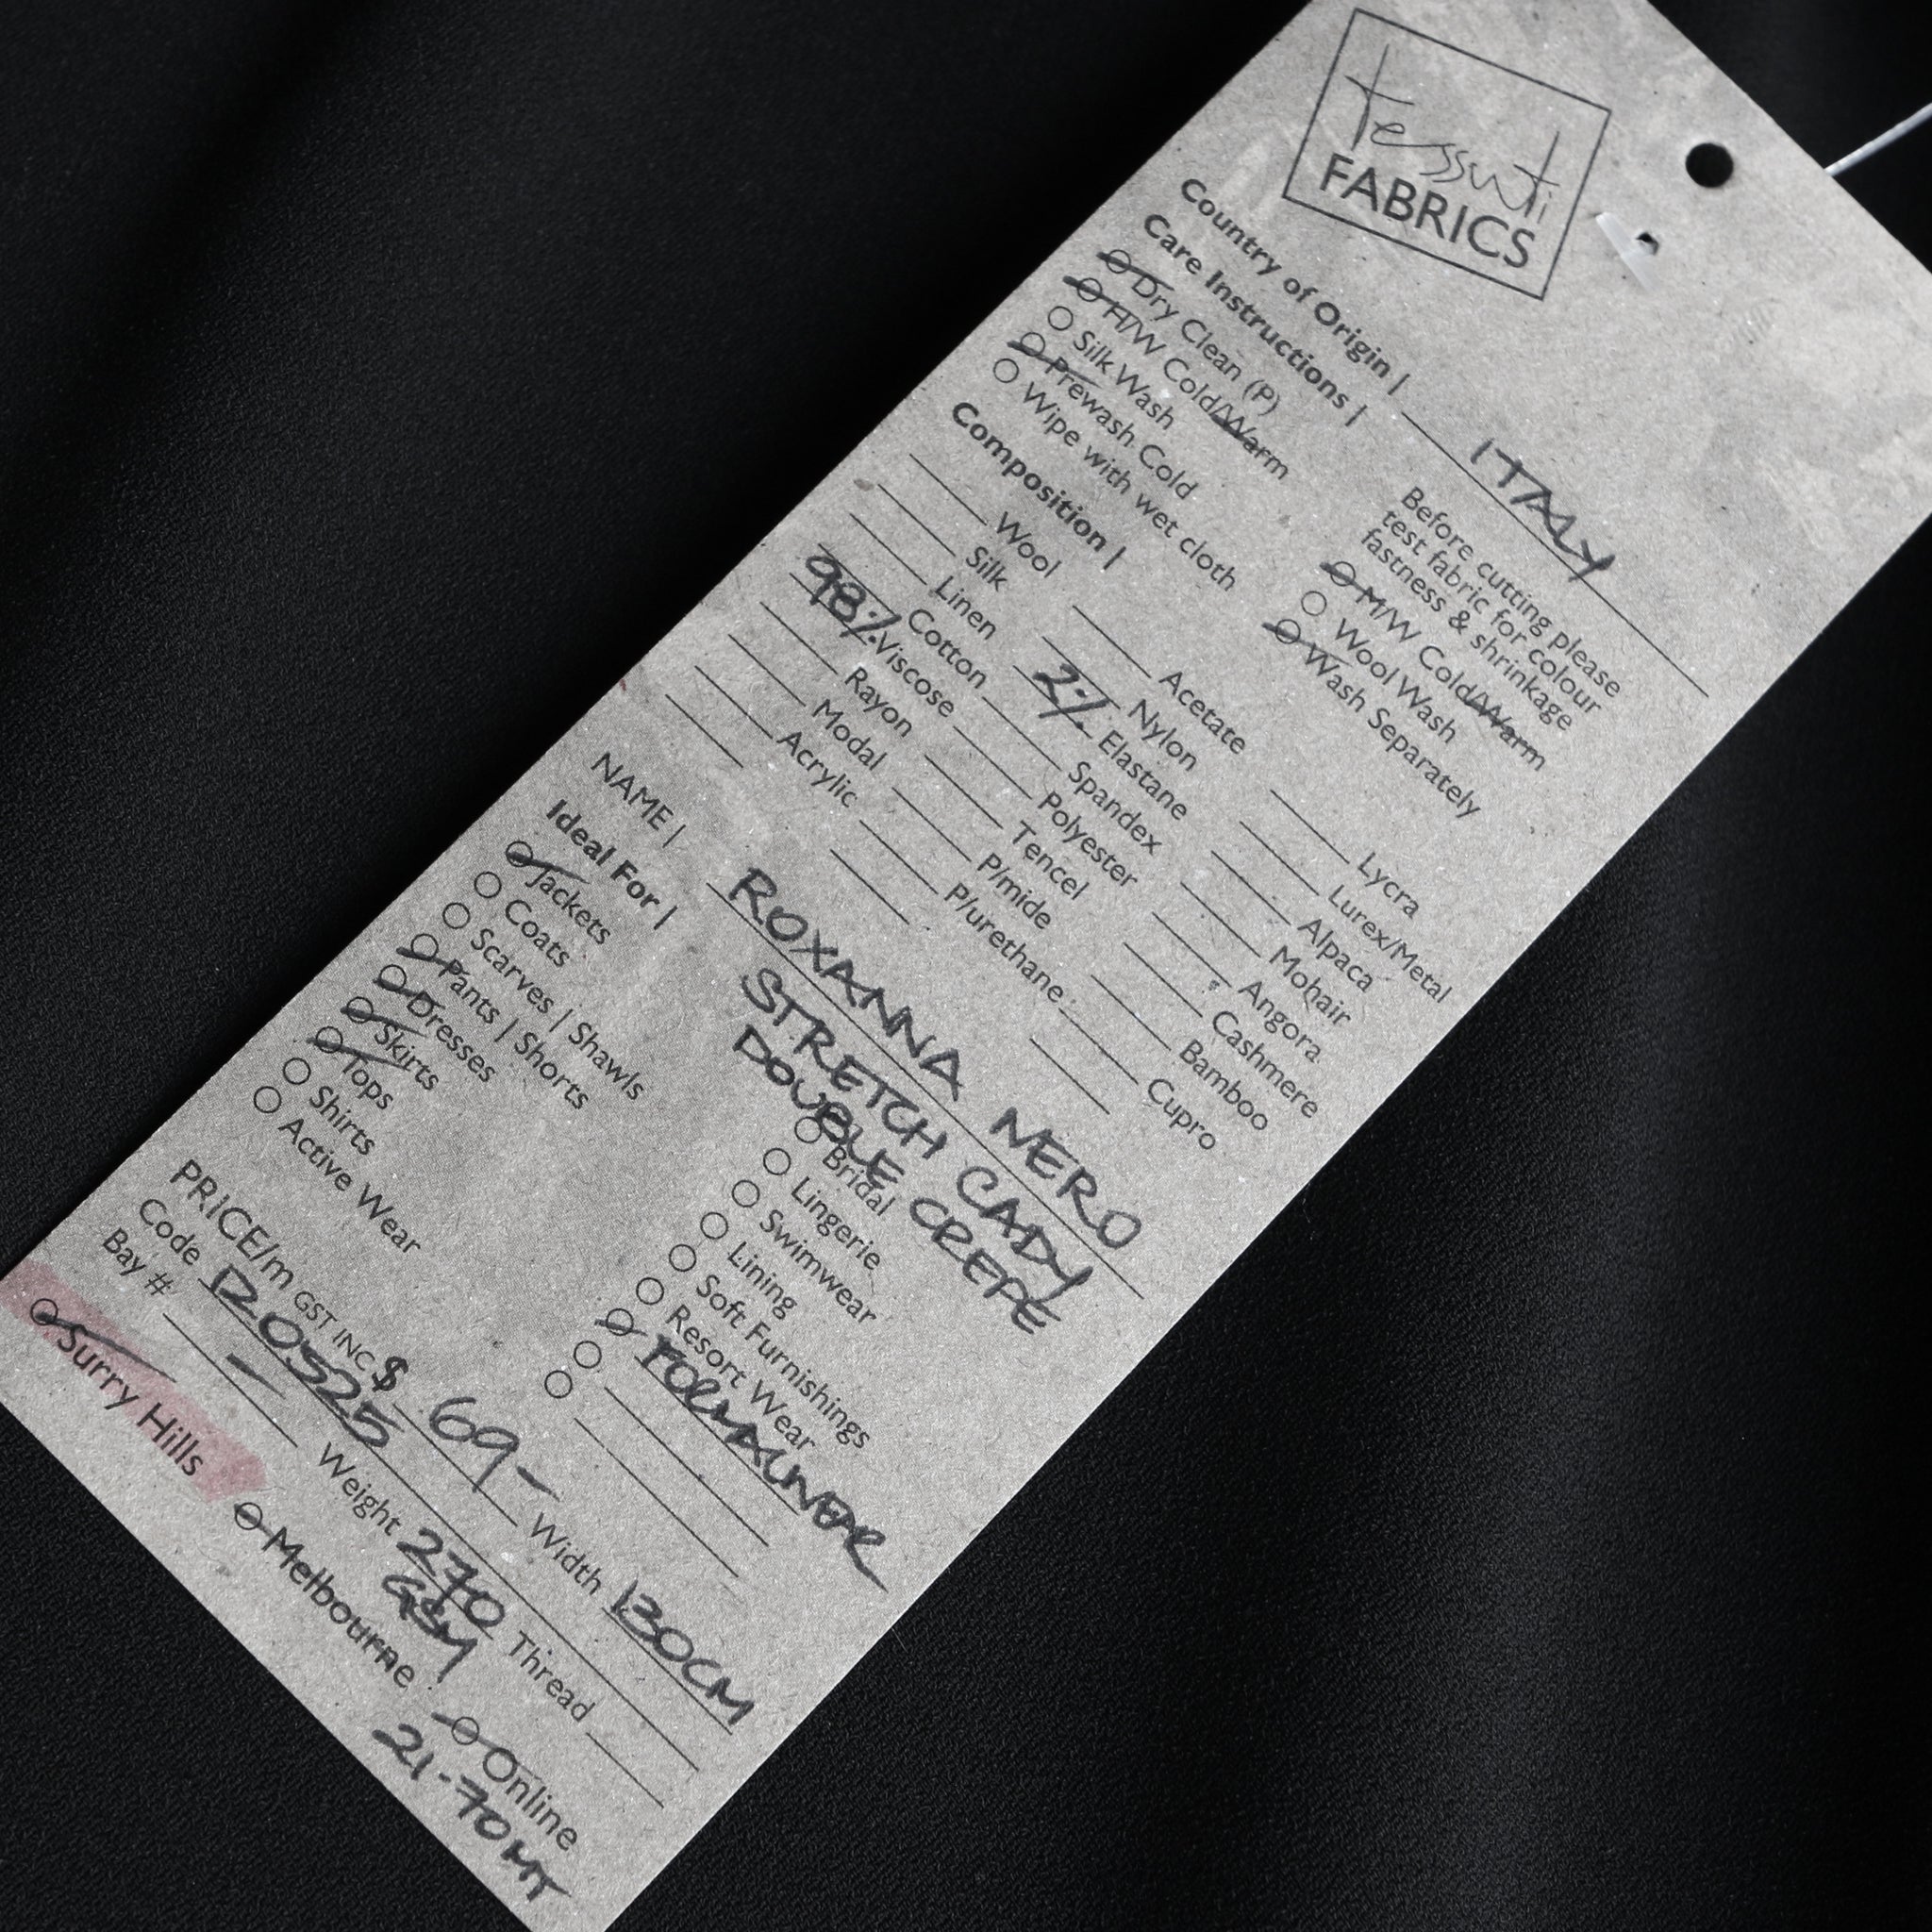 tessuti
FABRICS
Country of Origin | ITALY
Care Instructions |
Before cutting please
test fabric for colour
fastness & shrinkage
Dry Clean (P)
H/W Cold/Warm
Silk Wash
Prewash Cold
Wipe with wet cloth
M/W Cold/Warm
Wool Wash
Wash Separately
Composition |
Wool
Silk
Linen
Cotton
98% Viscose
Rayon
Modal
Acrylic
Acetate
Nylon
2% Elastane
Spandex
Polyester
Tencel
P/mide
P/urethane
Lycra
Lurex/Metal
Alpaca
Mohair
Angora
Cashmere
Bamboo
Cupro
NAME | ROXANNA NERO
STRETCH CADY
DOUBLE CREPE
Ideal For |
Jackets
Coats
Scarves | Shawls
Pants | Shorts
Dresses
Skirts
Tops
Shirts
Active Wear
Bridal
Lingerie
Swimwear
Lining
Soft Furnishings
Resort Wear
FORMALWEAR
PRICE/m GST INC $ 69- Width 130CM
Code 120325 Weight 270 GSM Thread
Bay # -
Surry Hills Melbourne Online
21-70MT